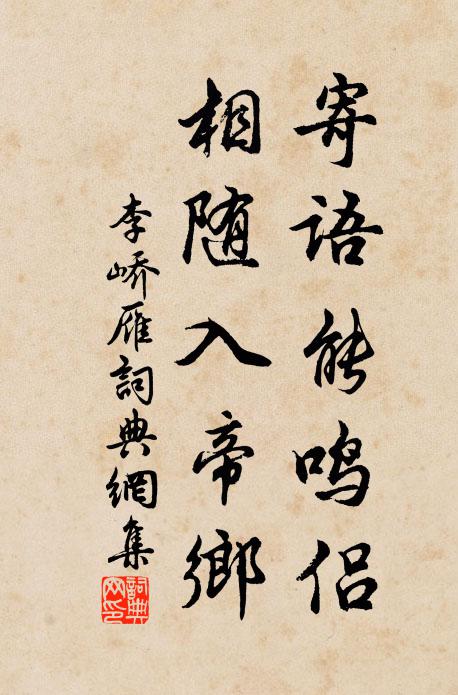 寄语能鸣侣
相随入帝鄉
李峤雁詞典網集
詞典网印